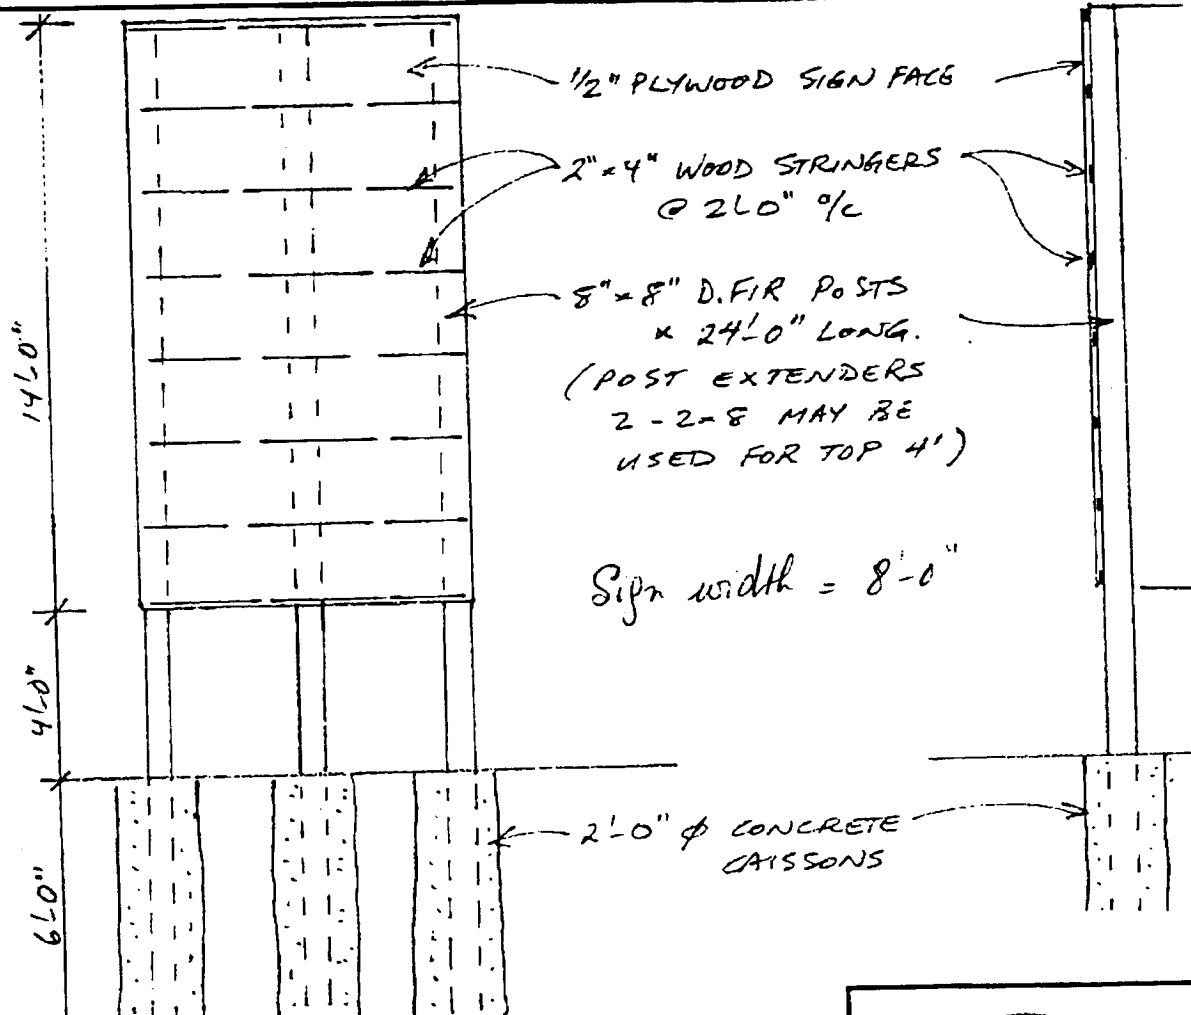 1/2" PLYWOOD SIGN FACE
2"x4" WOOD STRINGERS
@ 2'-0" o/c
8"x8" D.FIR POSTS
x 24'-0" LONG.
(POST EXTENDERS
2-2x8 MAY BE
USED FOR TOP 4')
14'-0"
Sign width = 8'-0"
4'-0"
2'-0" φ CONCRETE
CAISSONS
6'-0"